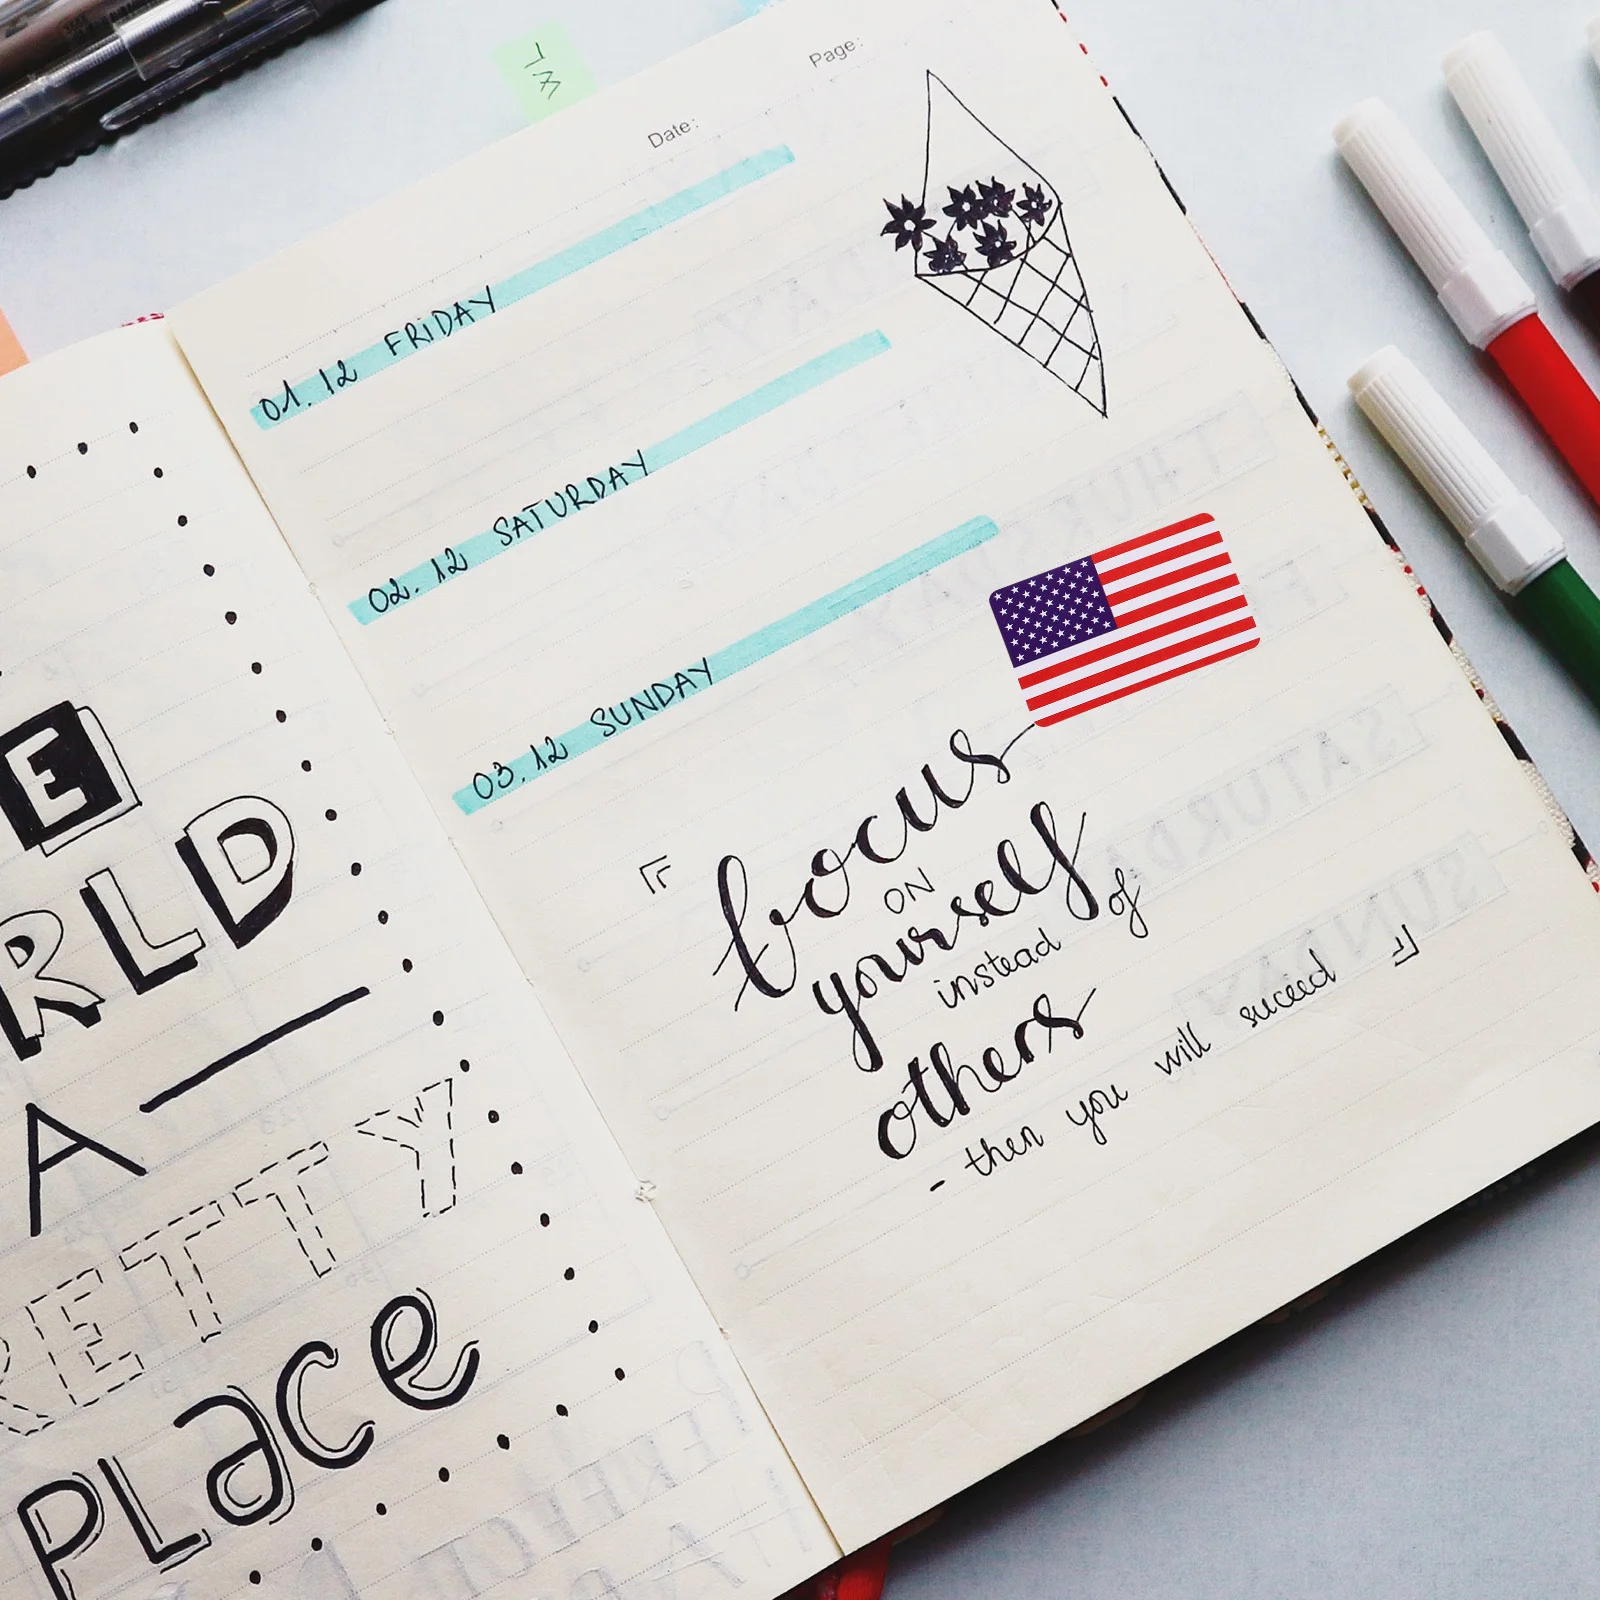 Date:
Page:
01.12 FRIDAY
02.12 SATURDAY
03.12 SUNDAY
focus
ON
yourself
instead of
others
- then you will suceed
E
RLD
A
RETTY
PLace